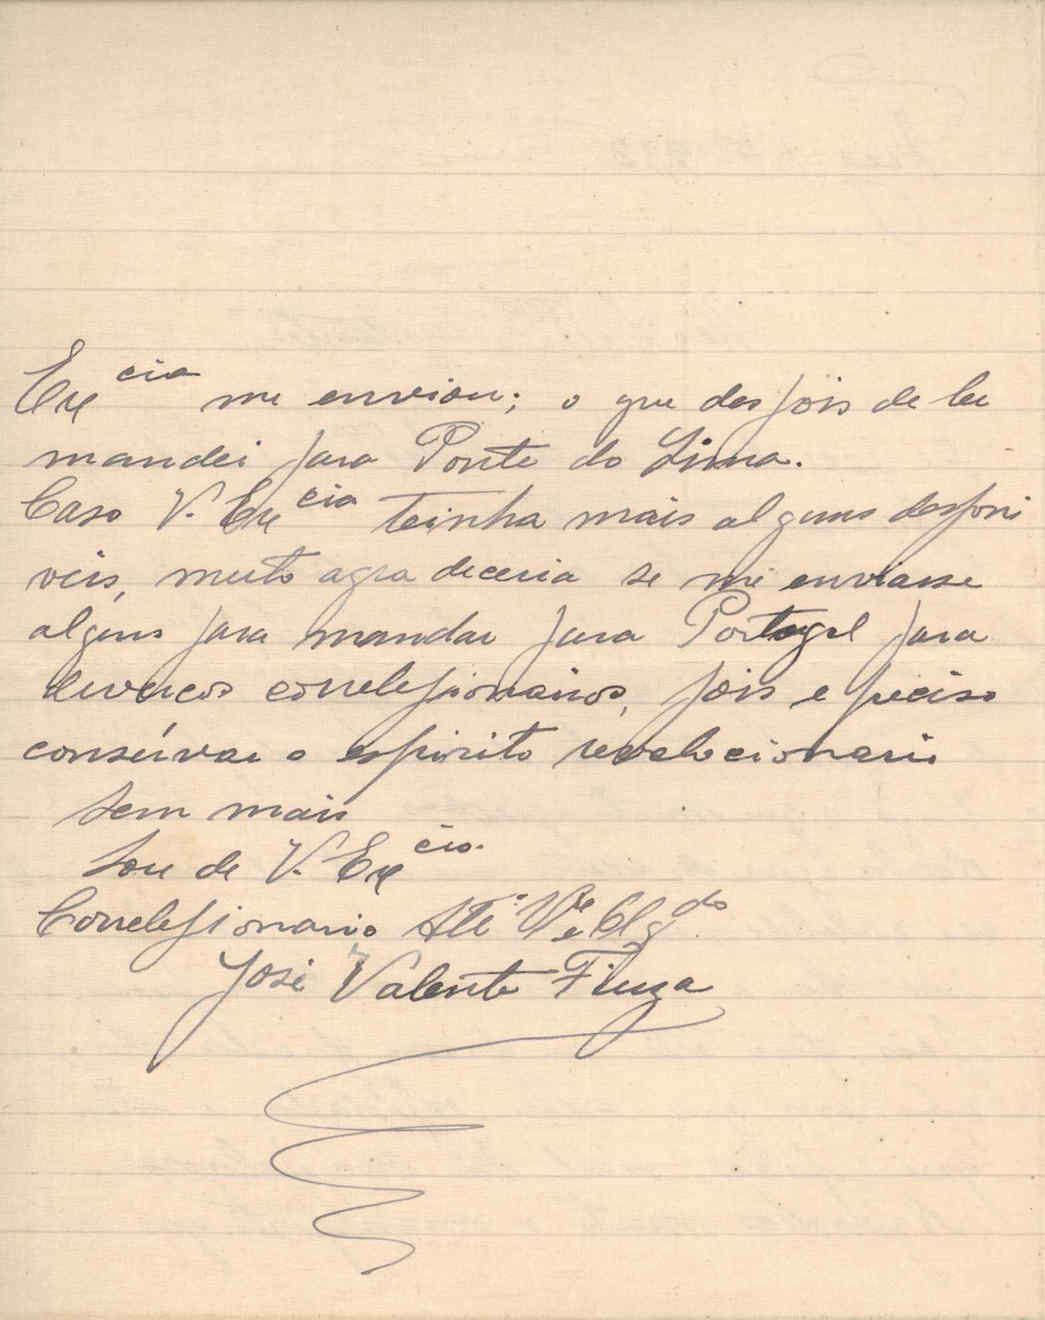 Excia me enviou; o que despois de ler
mandei para Ponte do Lima.
Caso V. Excia teinha mais alguns desponi
veis, muito agradeceria se me enviasse
alguns para mandar para Portugal para
deverços correlegionairios, pois e preciso
consérvar o espirito revolocionario
Sem mais
Sou de V. Excia.
Correlegionario Attº Vre e Obgdo
José Valente Fiuza